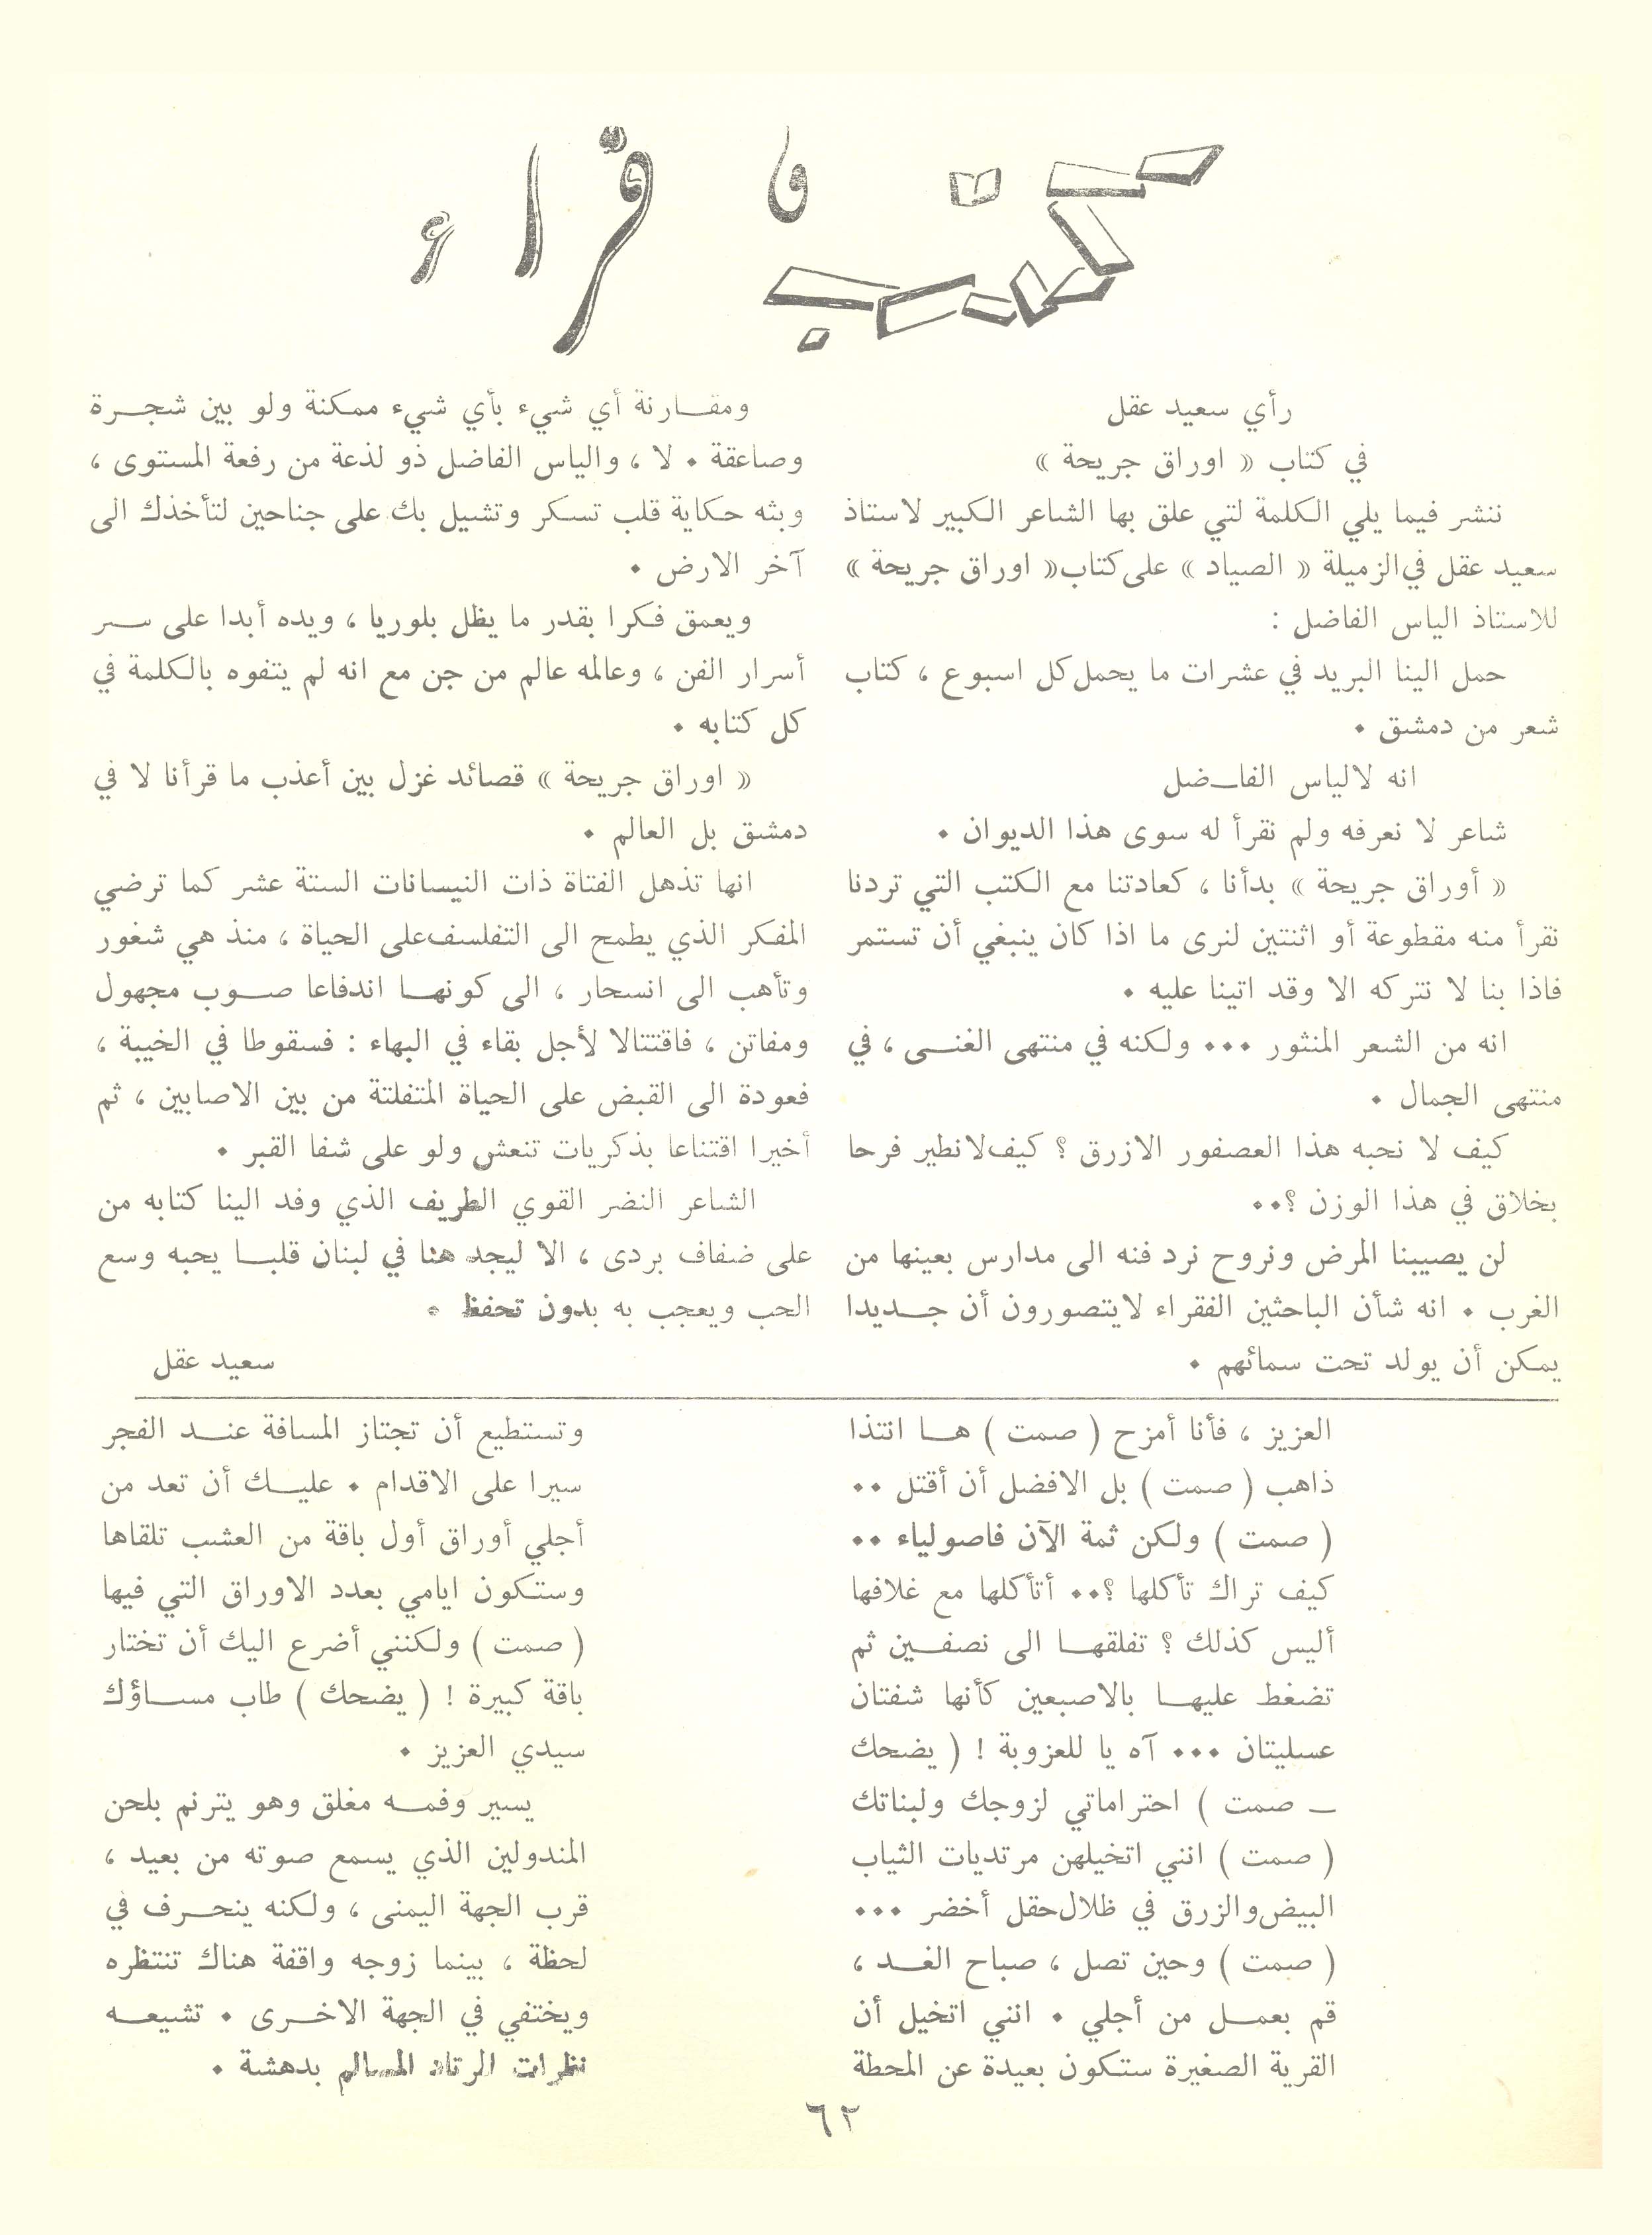 كتب و قراء
رأي سعيد عقل
في كتاب « اوراق جريحة »
ننشر فيما يلي الكلمة لتي علق بها الشاعر الكبير لاستاذ
سعيد عقل في الزميلة « الصياد » على كتاب « اوراق جريحة »
للاستاذ الياس الفاضل :
حمل الينا البريد في عشرات ما يحمل كل اسبوع ، كتاب
شعر من دمشق .
انه لالياس الفاضل
شاعر لا نعرفه ولم نقرأ له سوى هذا الديوان .
« أوراق جريحة » بدأنا ، كعادتنا مع الكتب التي تردنا
نقرأ منه مقطوعة أو اثنتين لنرى ما اذا كان ينبغي أن تستمر
فاذا بنا لا نتركه الا وقد اتينا عليه .
انه من الشعر المنثور ... ولكنه في منتهى الغنى ، في
منتهى الجمال .
كيف لا نحبه هذا العصفور الازرق ؟ كيف لانطير فرحا
بخلاق في هذا الوزن ؟..
لن يصيبنا المرض ونروح نرد فنه الى مدارس بعينها من
الغرب . انه شأن الباحثين الفقراء لايتصورون أن جديدا
يمكن أن يولد تحت سمائهم .
ومقارنة أي شيء بأي شيء ممكنة ولو بين شجرة
وصاعقة . لا ، والياس الفاضل ذو لذعة من رفعة المستوى ،
وبثه حكاية قلب تسكر وتشيل بك على جناحين لتأخذك الى
آخر الارض .
ويعمق فكرا بقدر ما يظل بلوريا ، ويده أبدا على سر
أسرار الفن ، وعالمه عالم من جن مع انه لم يتفوه بالكلمة في
كل كتابه .
« اوراق جريحة » قصائد غزل بين أعذب ما قرأنا لا في
دمشق بل العالم .
انها تذهل الفتاة ذات النيسانات الستة عشر كما ترضي
المفكر الذي يطمح الى التفلسف على الحياة ، منذ هي شغور
وتأهب الى انسحار ، الى كونها اندفاعا صوب مجهول
ومفاتن ، فاقتتالا لأجل بقاء في البهاء : فسقوطا في الخيبة ،
فعودة الى القبض على الحياة المتفلتة من بين الاصابين ، ثم
أخيرا اقتناعا بذكريات تنعش ولو على شفا القبر .
الشاعر النضر القوي الطريف الذي وفد الينا كتابه من
على ضفاف بردى ، الا ليجد هنا في لبنان قلبا يحبه وسع
الحب ويعجب به بدون تحفظ .
سعيد عقل
العزيز ، فأنا أمزح ( صمت ) ها انتذا
ذاهب ( صمت ) بل الافضل أن أقتل ..
( صمت ) ولكن ثمة الآن فاصولياء ..
كيف تراك تأكلها ؟.. أتأكلها مع غلافها
أليس كذلك ؟ تفلقها الى نصفين ثم
تضغط عليها بالاصبعين كأنها شفتان
عسليتان ... آه يا للعزوبة ! ( يضحك
ـ صمت ) احتراماتي لزوجك ولبناتك
( صمت ) انني اتخيلهن مرتديات الثياب
البيض والزرق في ظلال حقل أخضر ...
( صمت ) وحين تصل ، صباح الغد ،
قم بعمل من أجلي . انني اتخيل أن
القرية الصغيرة ستكون بعيدة عن المحطة
وتستطيع أن تجتاز المسافة عند الفجر
سيرا على الاقدام . عليك أن تعد من
أجلي أوراق أول باقة من العشب تلقاها
وستكون ايامي بعدد الاوراق التي فيها
( صمت ) ولكنني أضرع اليك أن تختار
باقة كبيرة ! ( يضحك ) طاب مساؤك
سيدي العزيز .
يسير وفمه مغلق وهو يترنم بلحن
المندولين الذي يسمع صوته من بعيد ،
قرب الجهة اليمنى ، ولكنه ينحرف في
لحظة ، بينما زوجه واقفة هناك تنتظره
ويختفي في الجهة الاخرى . تشيعه
نظرات المسالم بدهشة .
٦٢